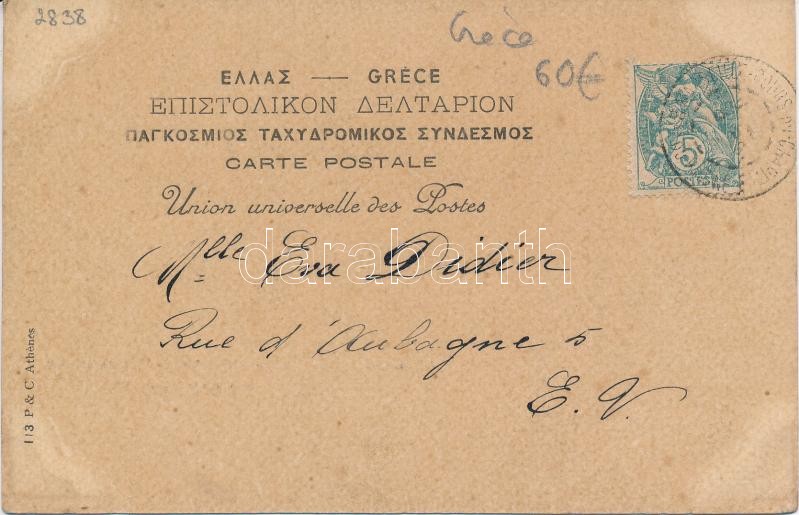 2838
Grèce
60€
ΕΛΛΑΣ — GRÈCE
ΕΠΙΣΤΟΛΙΚΟΝ ΔΕΛΤΑΡΙΟΝ
ΠΑΓΚΟΣΜΙΟΣ ΤΑΧΥΔΡΟΜΙΚΟΣ ΣΥΝΔΕΣΜΟΣ
CARTE POSTALE
Union universelle des Postes
5
POSTES
Mlle Eva Didier
Rue d'Aubagne 5
E. V.
darabanth
113 P & C Athènes